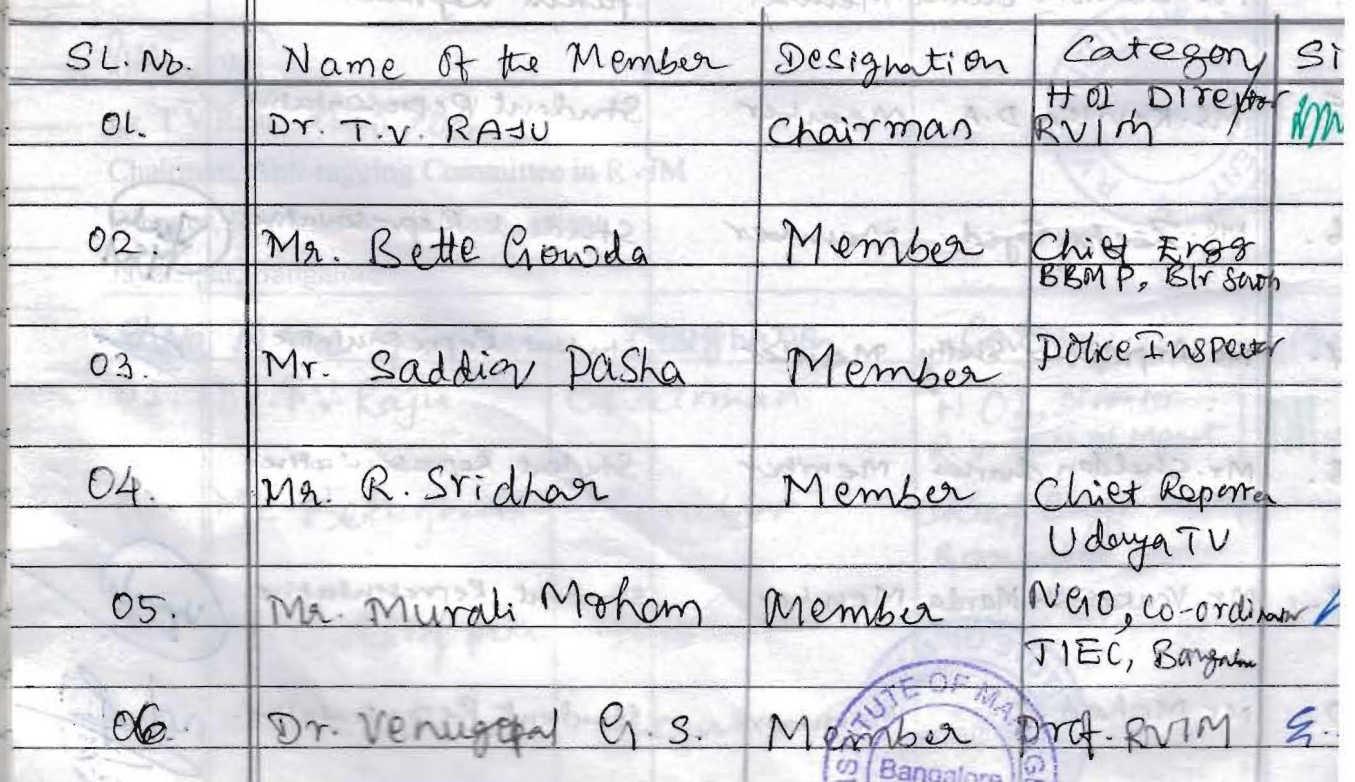 SL. No. Name of the Member Designation Category Si
01. Dr. T.V. RAJU Chairman HOI, Director
RVIM
Chairman, Anti-ragging Committee in R
02. Mr. Bette Gowda Member Chief Engg
BBMP, Blr
03. Mr. Saddiq Pasha Member Police Inspector
04. Mr. R. Sridhar Member Chief Reporter
Udaya TV
05. Mr. Murali Mohan Member NGO, Co-ordinator
TIEC, Bangalore
06. Dr. Venugopal G.S. Member Prof. RVIM
INSTITUTE OF MA
Bangalore